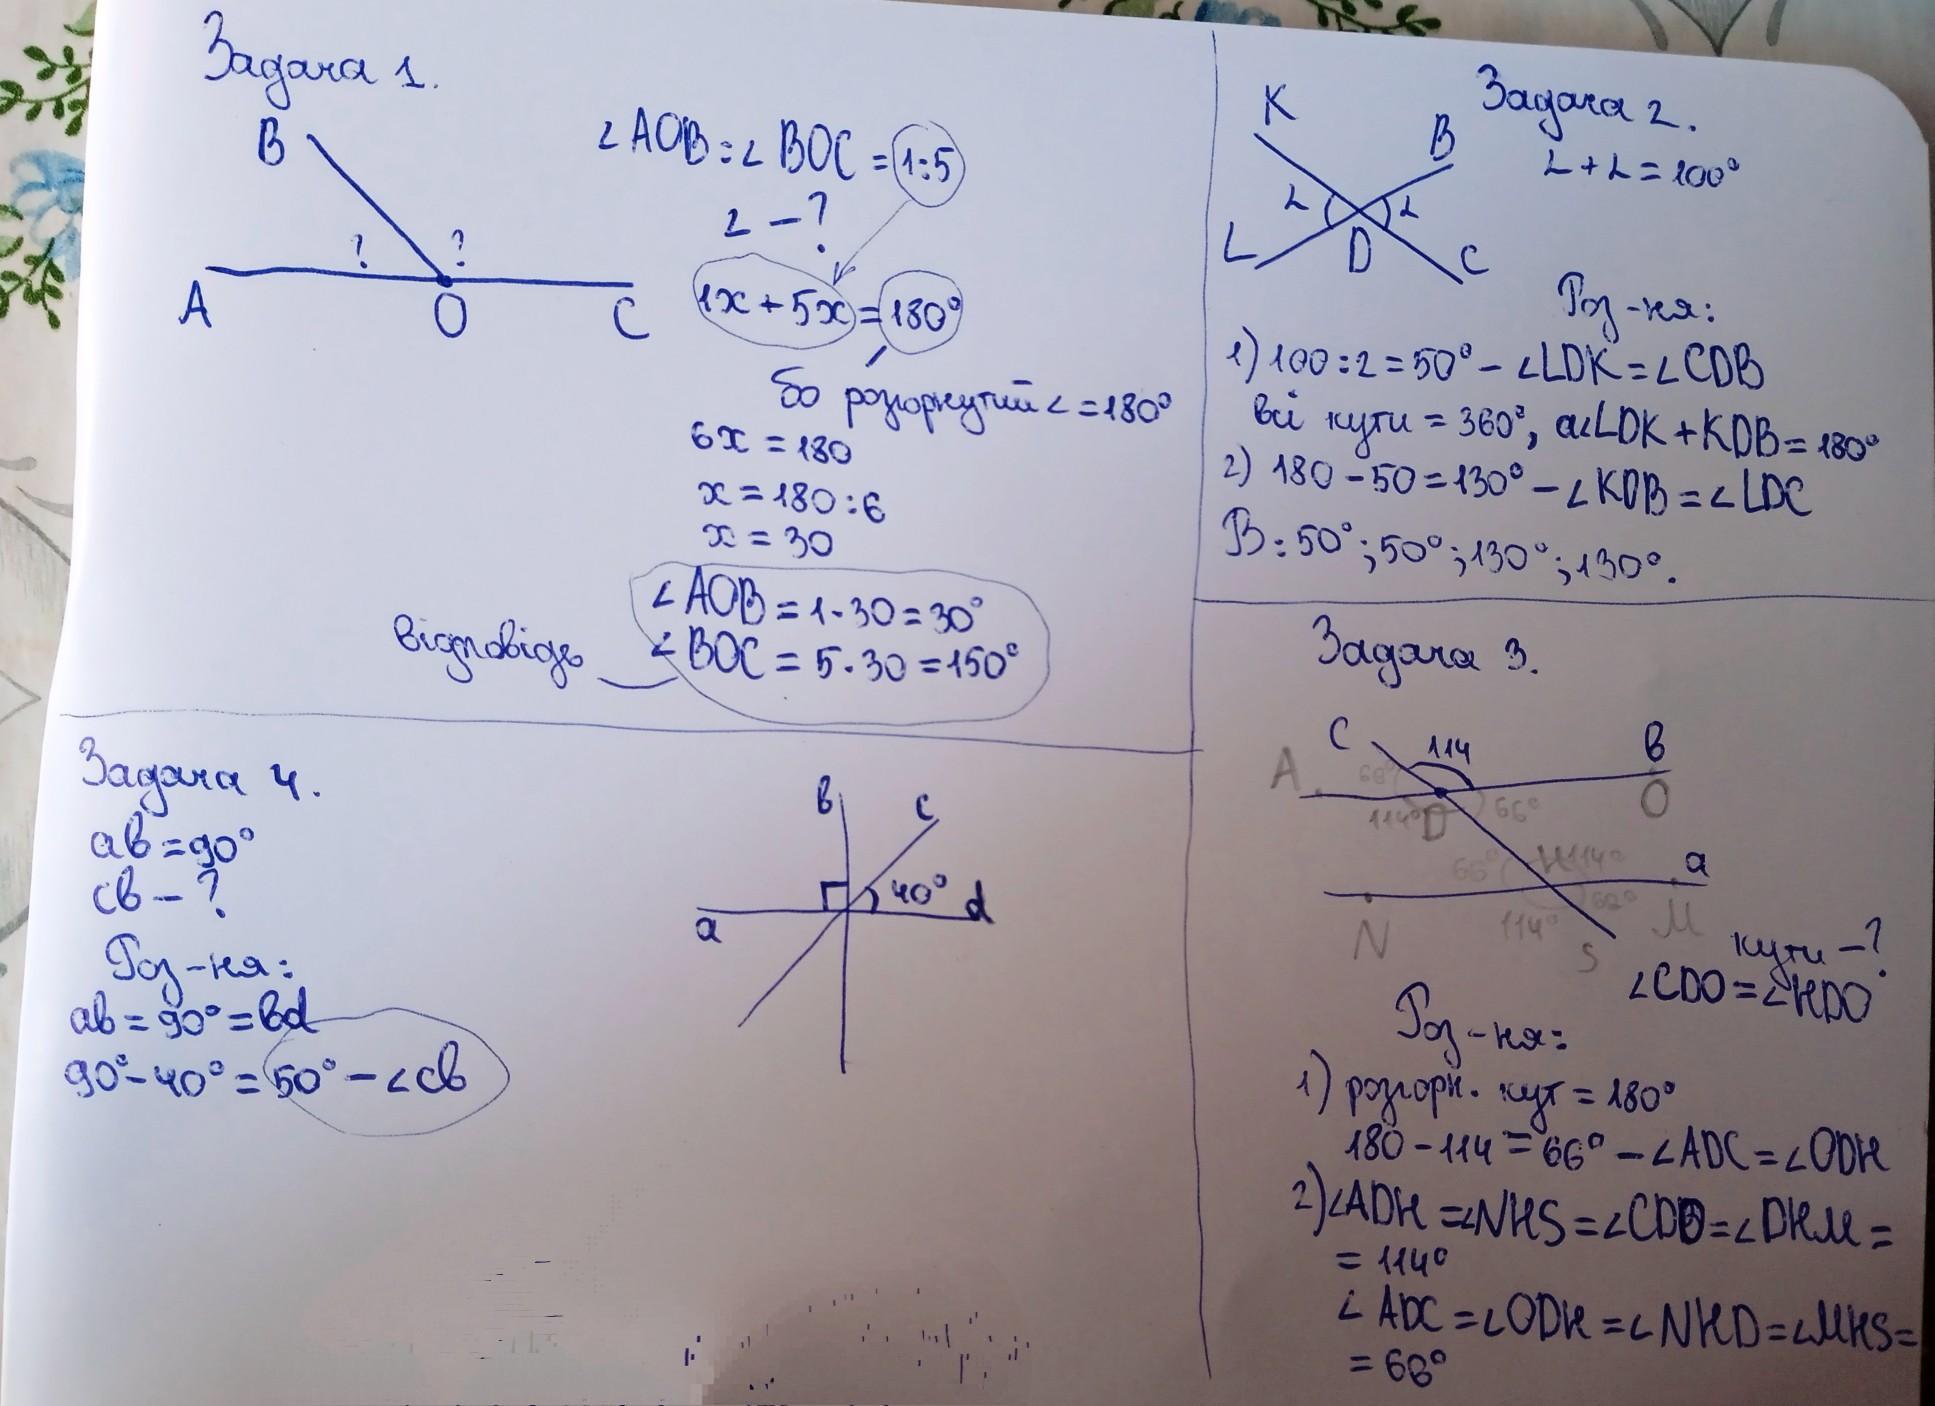 Задача 1.
B
? ?
A O C
∠AOB:∠BOC = 1:5
∠ – ?
1x + 5x = 180°
бо розгорнутий ∠ = 180°
6x = 180
x = 180 : 6
x = 30
∠AOB = 1·30 = 30°
∠BOC = 5·30 = 150°
відповідь
Задача 2.
K B
∠ + ∠ = 100°
∠ ∠
L D C
Роз-ня:
1) 100:2 = 50° – ∠LDK = ∠CDB
всі кути = 360°, а ∠LDK + KDB = 180°
2) 180 – 50 = 130° – ∠KDB = ∠LDC
В: 50°; 50°; 130°; 130°.
Задача 3.
C 114 B
A 66° O
114° D 66°
66° H 114° a
114° 66°
N S M
кути – ?
∠CDO = ∠HDO
Роз-ня:
1) розгорн. кут = 180°
180 – 114 = 66° – ∠ADC = ∠ODH
2) ∠ADH = ∠NHS = ∠CDO = ∠DHM =
= 114°
∠ADC = ∠ODH = ∠NHD = ∠MHS =
= 66°
Задача 4.
ab = 90°
cb – ?
Роз-ня:
ab = 90° = bd
90° – 40° = 50° – ∠cb
b c
40° d
a